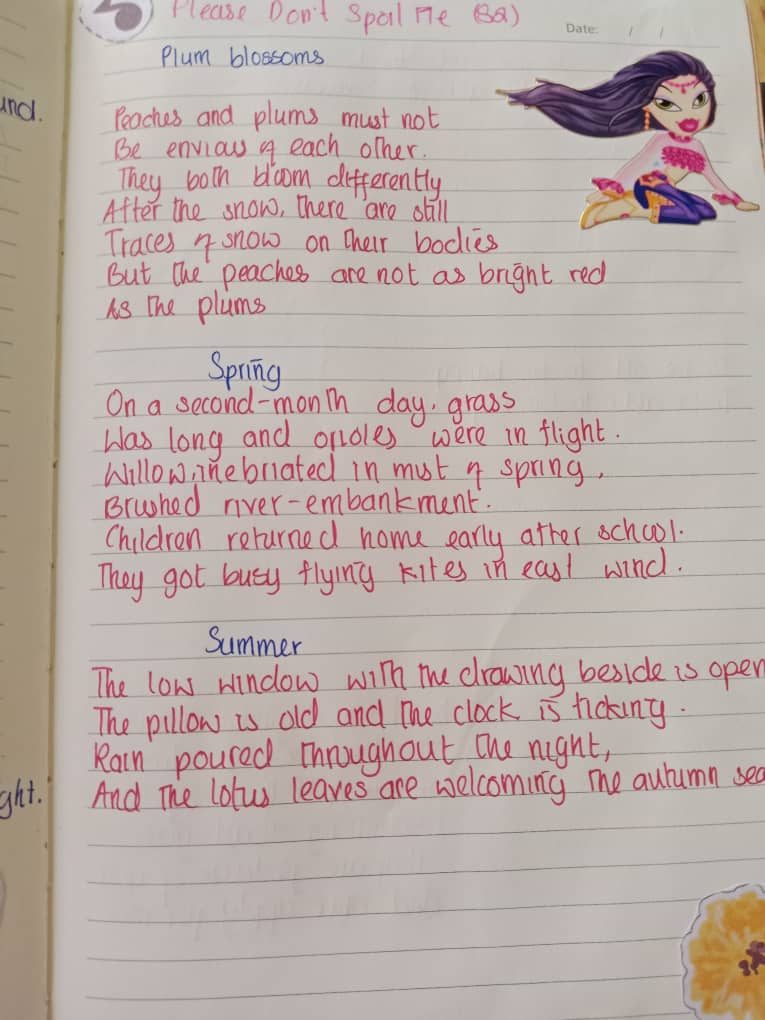 Please Don't Spoil Me (32)
Date: / /
Plum blossoms
und.
Peaches and plums must not
Be envious of each other.
They both bloom differently
After the snow, there are still
Traces of snow on their bodies
But the peaches are not as bright red
As the plums
Spring
On a second-month day, grass
Was long and orioles were in flight.
Willow, inebriated in mist of spring,
Brushed river-embankment.
Children returned home early after school.
They got busy flying kites in east wind.
Summer
The low window with the drawing beside is open
The pillow is old and the clock is ticking.
Rain poured throughout the night,
ght.
And the lotus leaves are welcoming the autumn sea